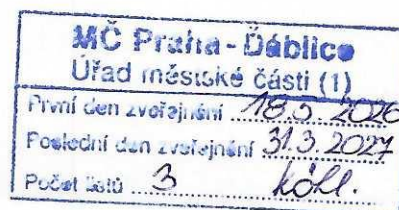 MČ Praha - Ďáblice
Úřad městské části (1)
První den zveřejnění 18.5.2026
Poslední den zveřejnění 31.3.2027
Počet listů 3 Köll.